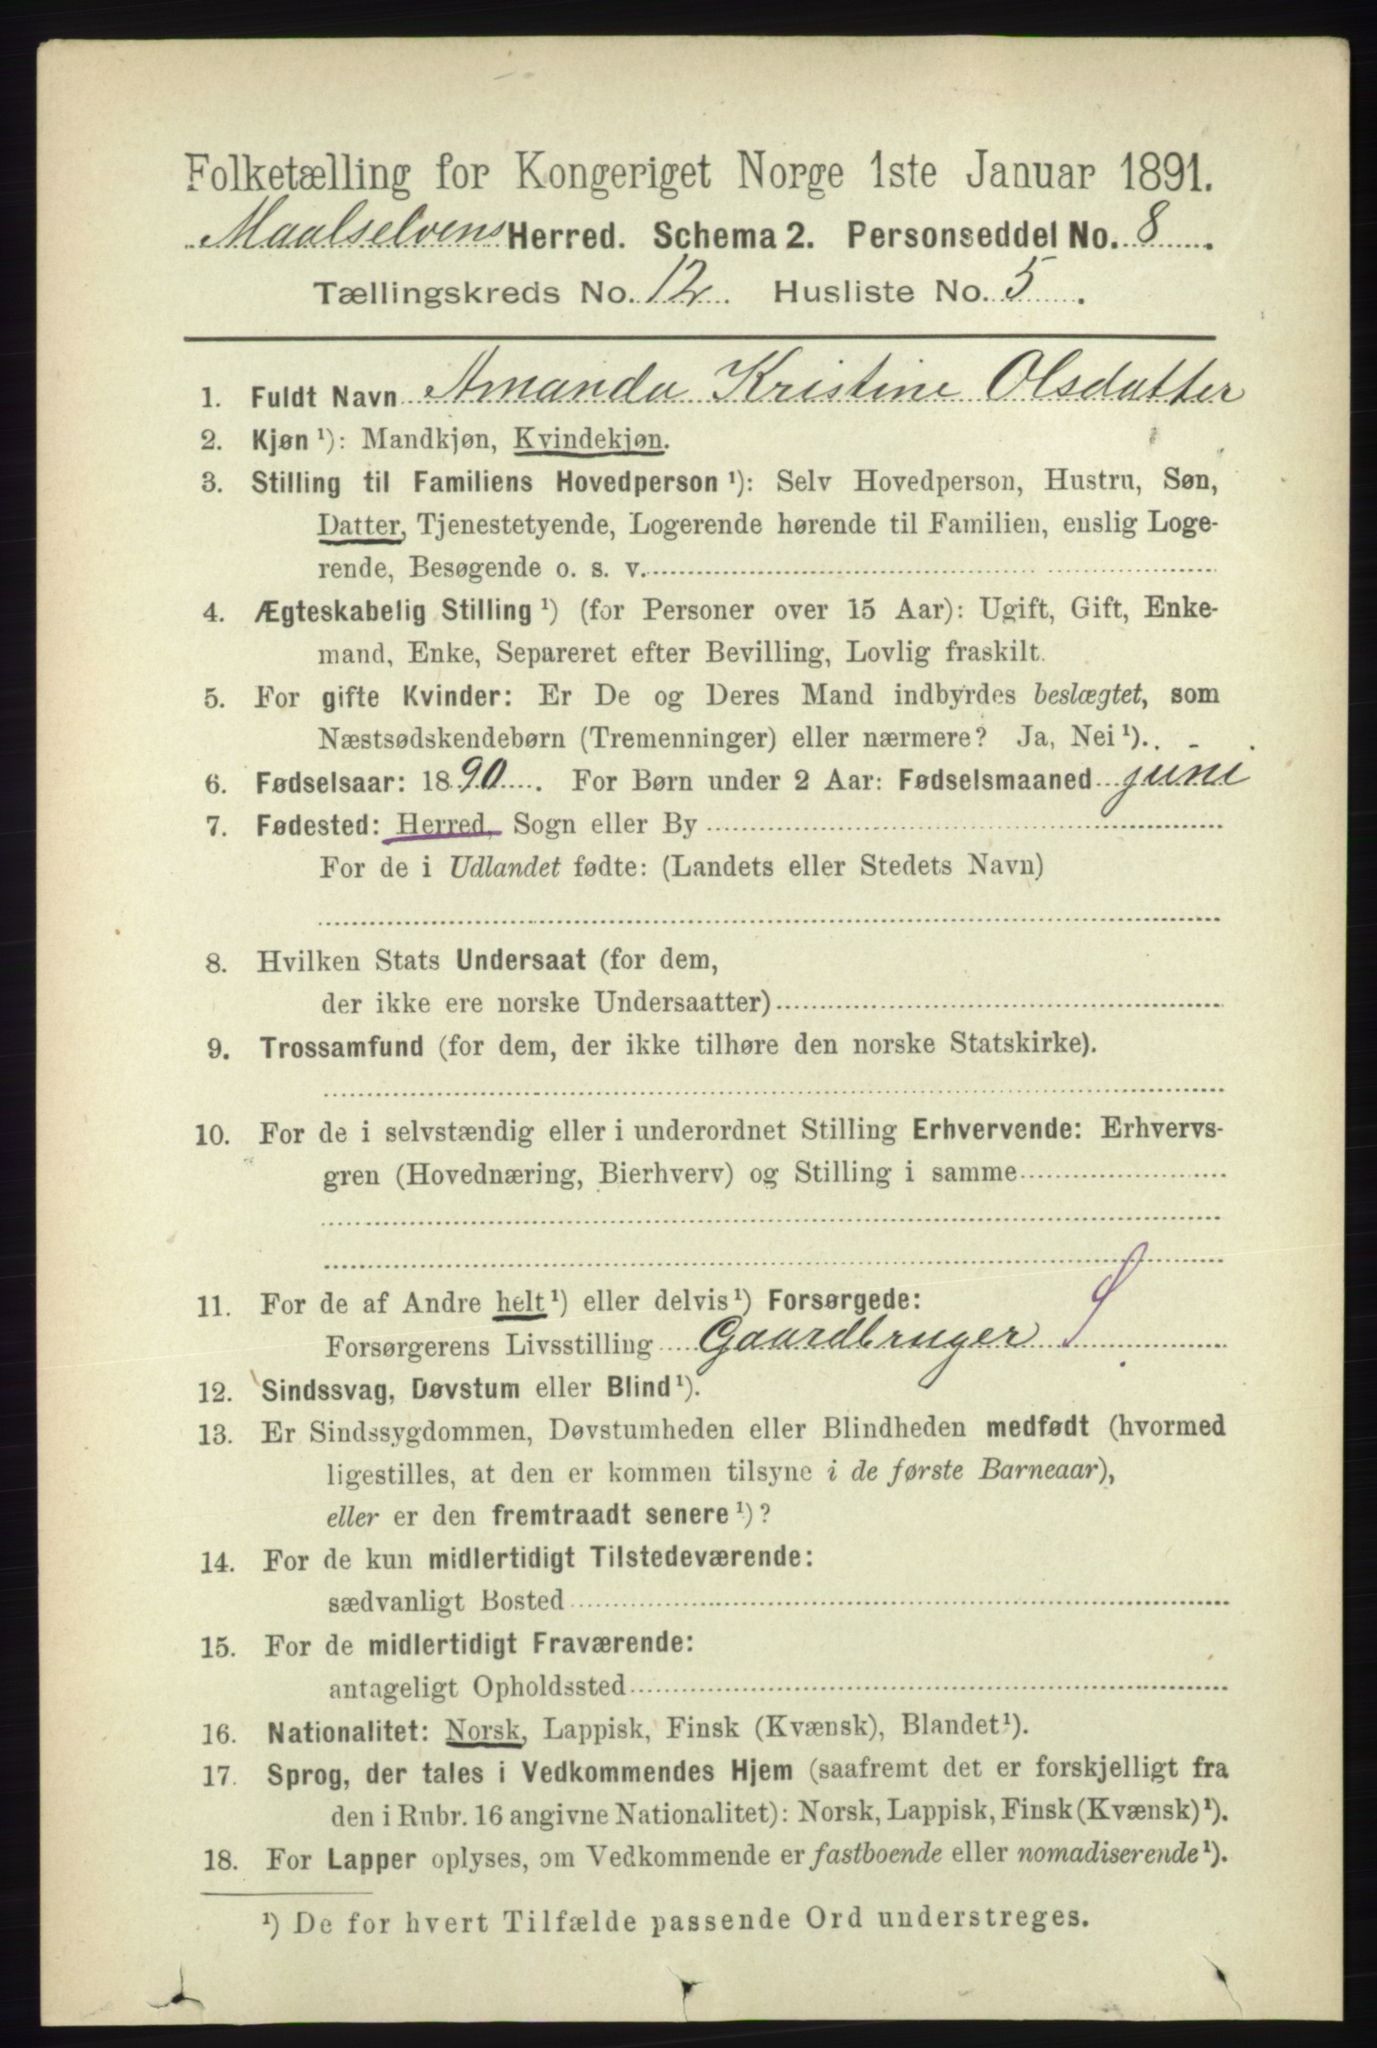 Folketælling for Kongeriget Norge 1ste Januar 1891.
Maalselvens Herred. Schema 2. Personseddel No. 8.
Tællingskreds No. 12. Husliste No. 5.
1. Fuldt Navn Amanda Kristine Olsdatter
2. Kjøn ¹): Mandkjøn, Kvindekjøn.
3. Stilling til Familiens Hovedperson ¹): Selv Hovedperson, Hustru, Søn,
Datter, Tjenestetyende, Logerende hørende til Familien, enslig Loge-
rende, Besøgende o. s. v.
4. Ægteskabelig Stilling ¹) (for Personer over 15 Aar): Ugift, Gift, Enke-
mand, Enke, Separeret efter Bevilling, Lovlig fraskilt.
5. For gifte Kvinder: Er De og Deres Mand indbyrdes beslægtet, som
Næstsødskendebørn (Tremenninger) eller nærmere? Ja, Nei ¹).
6. Fødselsaar: 1890. For Børn under 2 Aar: Fødselsmaaned juni
7. Fødested: Herred, Sogn eller By
For de i Udlandet fødte: (Landets eller Stedets Navn)
8. Hvilken Stats Undersaat (for dem,
der ikke ere norske Undersaatter)
9. Trossamfund (for dem, der ikke tilhøre den norske Statskirke).
10. For de i selvstændig eller i underordnet Stilling Erhvervende: Erhvervs-
gren (Hovednæring, Bierhverv) og Stilling i samme
11. For de af Andre helt ¹) eller delvis ¹) Forsørgede:
Forsørgerens Livsstilling Gaardbruger S
12. Sindssvag, Døvstum eller Blind ¹).
13. Er Sindssygdommen, Døvstumheden eller Blindheden medfødt (hvormed
ligestilles, at den er kommen tilsyne i de første Barneaar),
eller er den fremtraadt senere ¹)?
14. For de kun midlertidigt Tilstedeværende:
sædvanligt Bosted
15. For de midlertidigt Fraværende:
antageligt Opholdssted
16. Nationalitet: Norsk, Lappisk, Finsk (Kvænsk), Blandet ¹).
17. Sprog, der tales i Vedkommendes Hjem (saafremt det er forskjelligt fra
den i Rubr. 16 angivne Nationalitet): Norsk, Lappisk, Finsk (Kvænsk) ¹).
18. For Lapper oplyses, om Vedkommende er fastboende eller nomadiserende ¹).
¹) De for hvert Tilfælde passende Ord understreges.